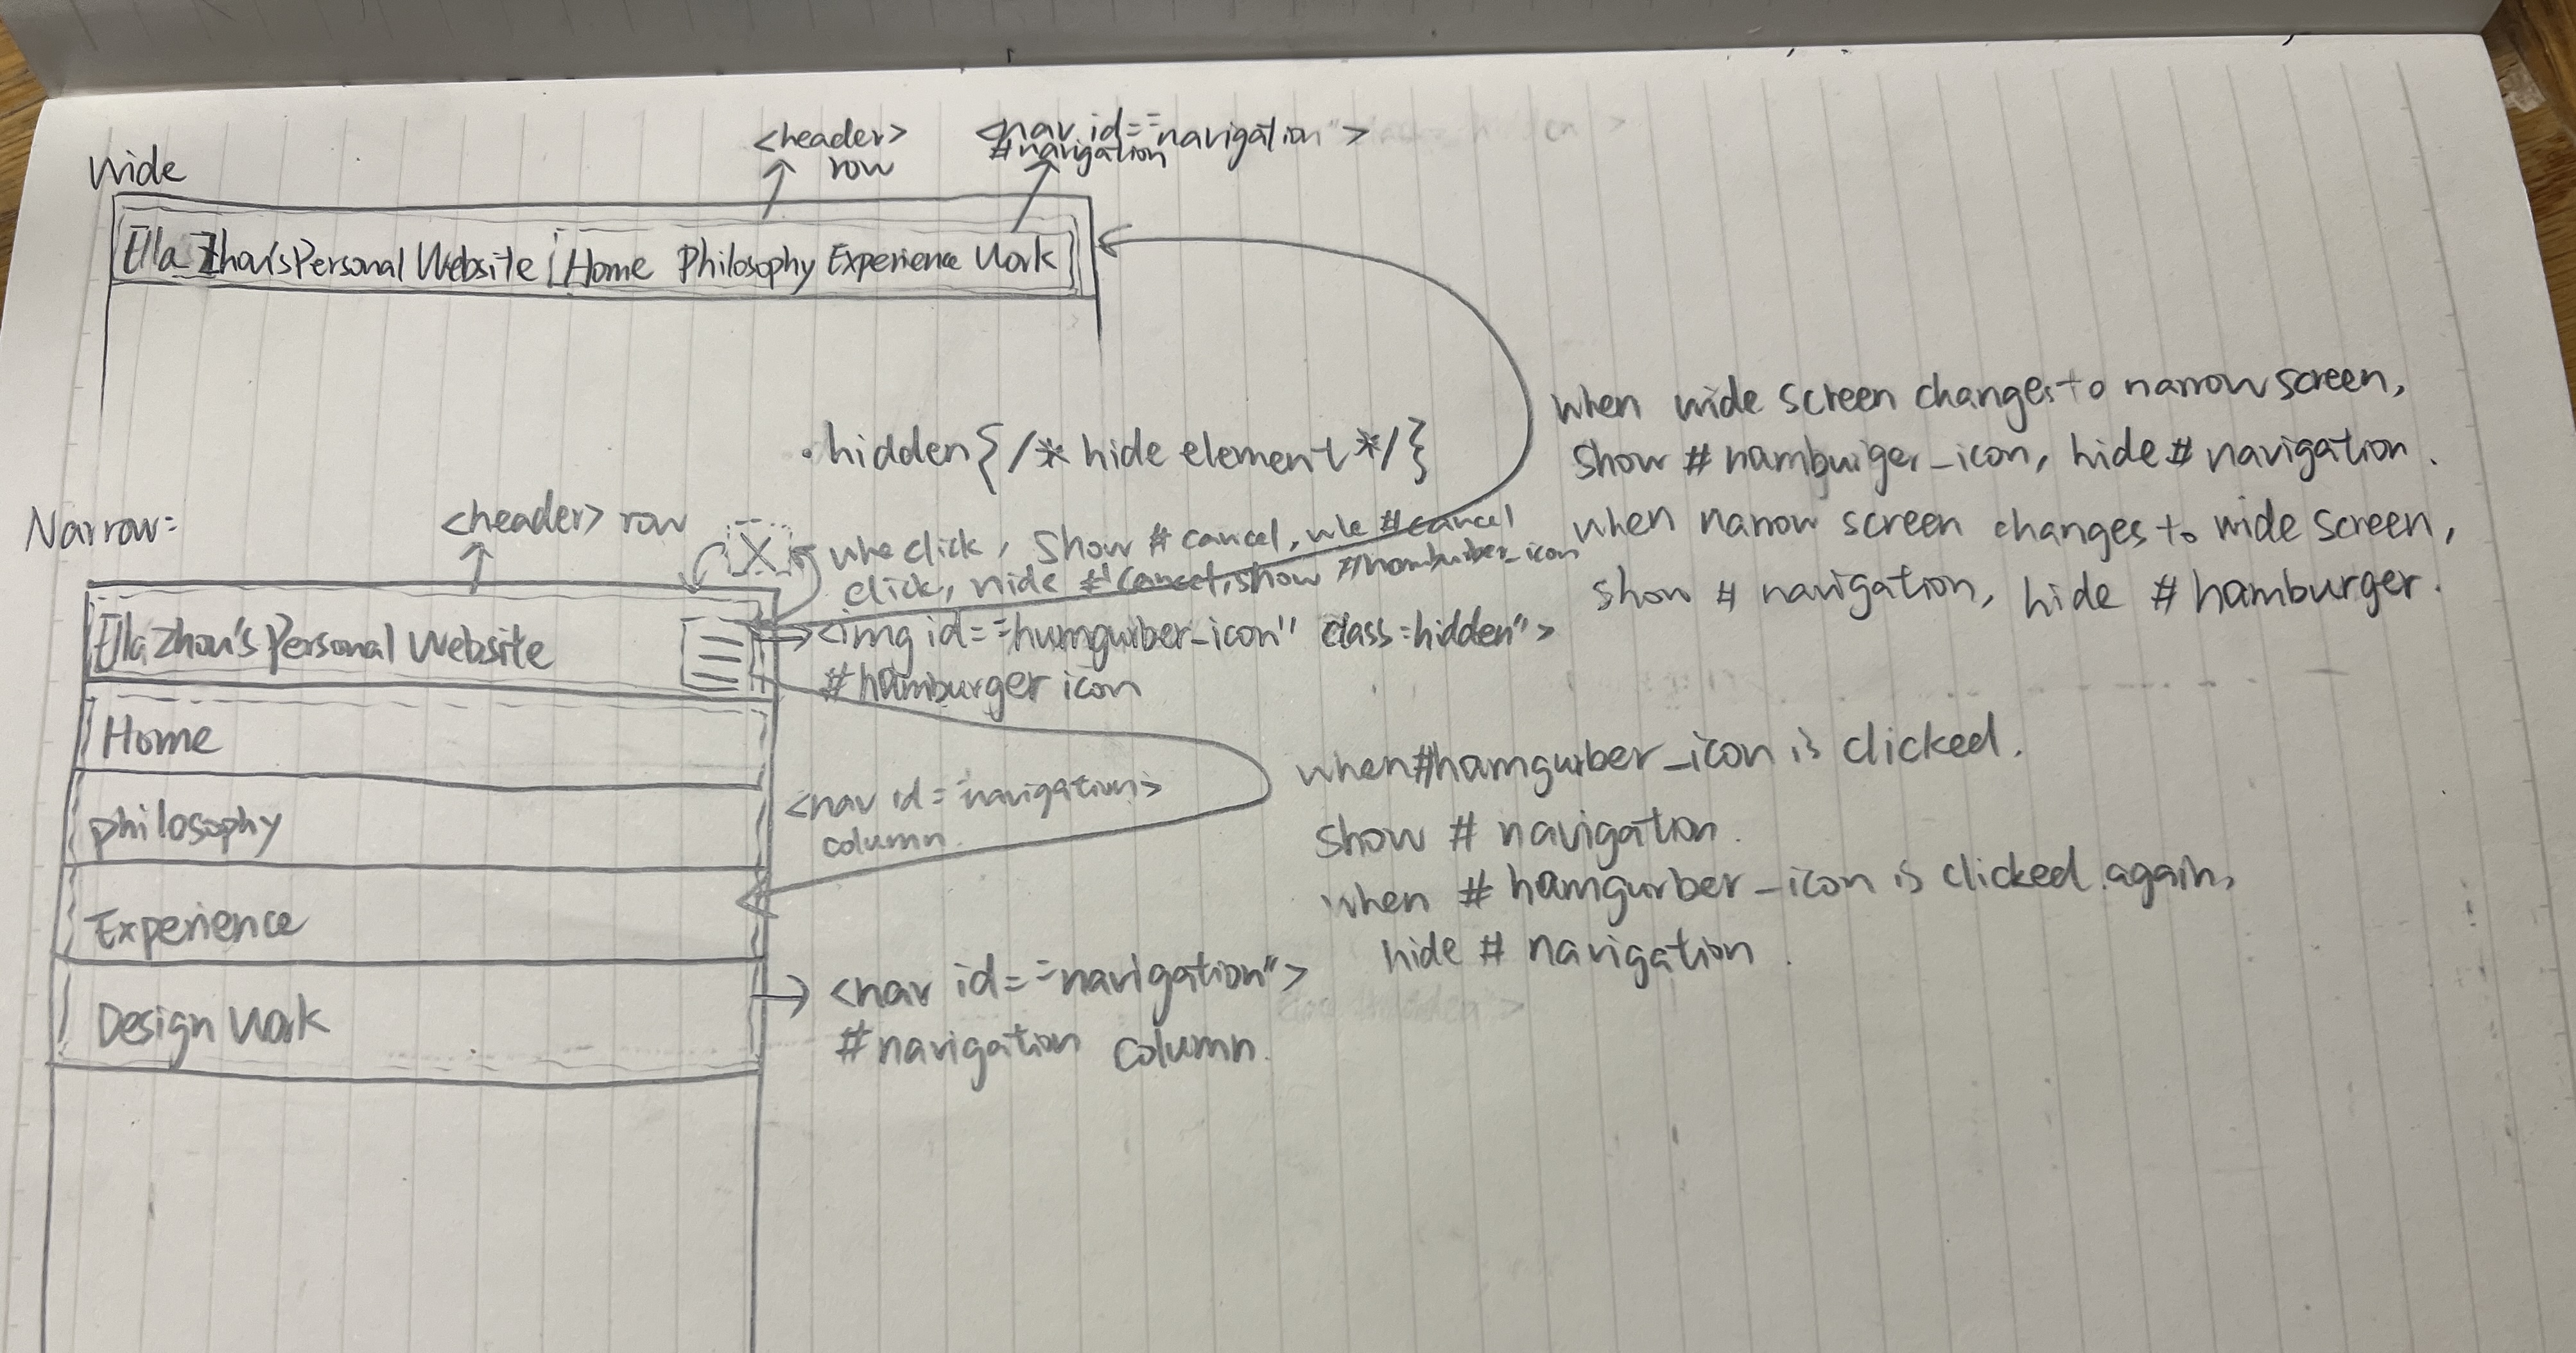 Wide
<header>
row
<nav id="=navigation">
#navigation
Ella Zhou's Personal Website Home Philosophy Experience Work
when wide screen changes to narrow screen,
show #hambuiger_icon, hide # navigation.
when narrow screen changes to wide screen,
show # navigation, hide # hamburger.
.hidden{/* hide element */}
Narrow:
<header> row
X
whe click, show # cancel, whe # cancel
click, hide # cancel, show #hamburber_icon
Ella Zhou's Personal Website
<img id="=humgurber_icon" class=hidden">
#hamburger icon
Home
philosophy
Experience
Design Work
<nav id="navigation>
column.
when #hamgurber_icon is clicked.
show # navigation.
when # hamgurber_icon is clicked again,
hide # navigation.
<nav id="=navigation">
#navigation column.